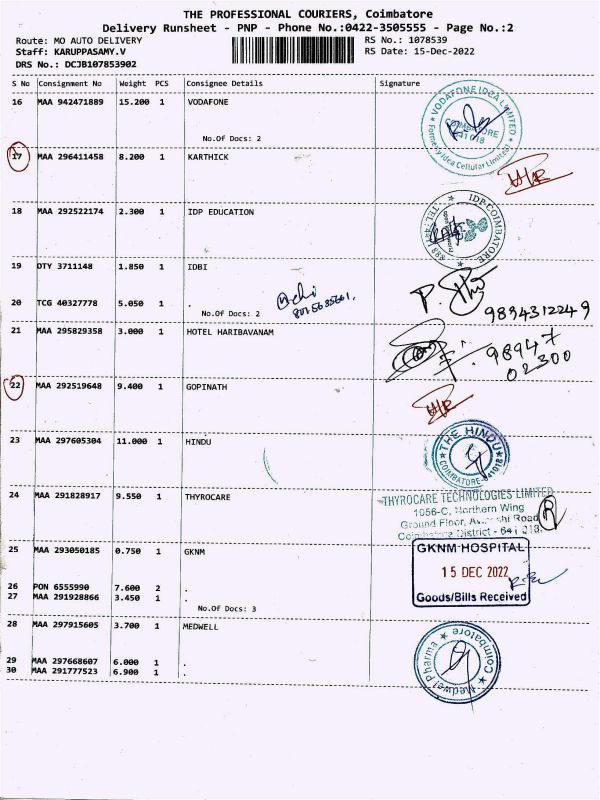 THE PROFESSIONAL COURIERS, Coimbatore
Delivery Runsheet - PNP - Phone No.:0422-3505555 - Page No.:2
Route: MO AUTO DELIVERY RS No.: 1078539
Staff: KARUPPASAMY.V RS Date: 15-Dec-2022
DRS No.: DCJB107853902
S No Consignment No Weight PCS Consignee Details Signature
16 MAA 942471889 15.200 1 VODAFONE
No.Of Docs: 2
VODAFONE IDEA LIMITED
(Formerly Idea Cellular Limited)
COIMBATORE
641 018
17 MAA 296411458 8.200 1 KARTHICK
18 MAA 292522174 2.300 1 IDP EDUCATION
IDP COIMBATORE
19 DTY 3711148 1.850 1 IDBI
20 TCG 40327778 5.050 1 .
No.Of Docs: 2
9894312249
21 MAA 295829358 3.000 1 HOTEL HARIBAVANAM
98947
02300
22 MAA 292519648 9.400 1 GOPINATH
23 MAA 297605304 11.000 1 HINDU
THE HINDU
COIMBATORE-641018
24 MAA 291828917 9.550 1 THYROCARE
THYROCARE TECHNOLOGIES LIMITED
1056-C, Northern Wing
Ground Floor, Road
Coimbatore District - 641 018.
25 MAA 293050185 0.750 1 GKNM
GKNM HOSPITAL
15 DEC 2022
Goods/Bills Received
26 PON 6555990 7.600 2 .
27 MAA 291928866 3.450 1 .
No.Of Docs: 3
28 MAA 297915605 3.700 1 MEDWELL
Medwel Pharma
Coimbatore
29 MAA 297668607 6.000 1 .
30 MAA 291777523 6.900 1 .